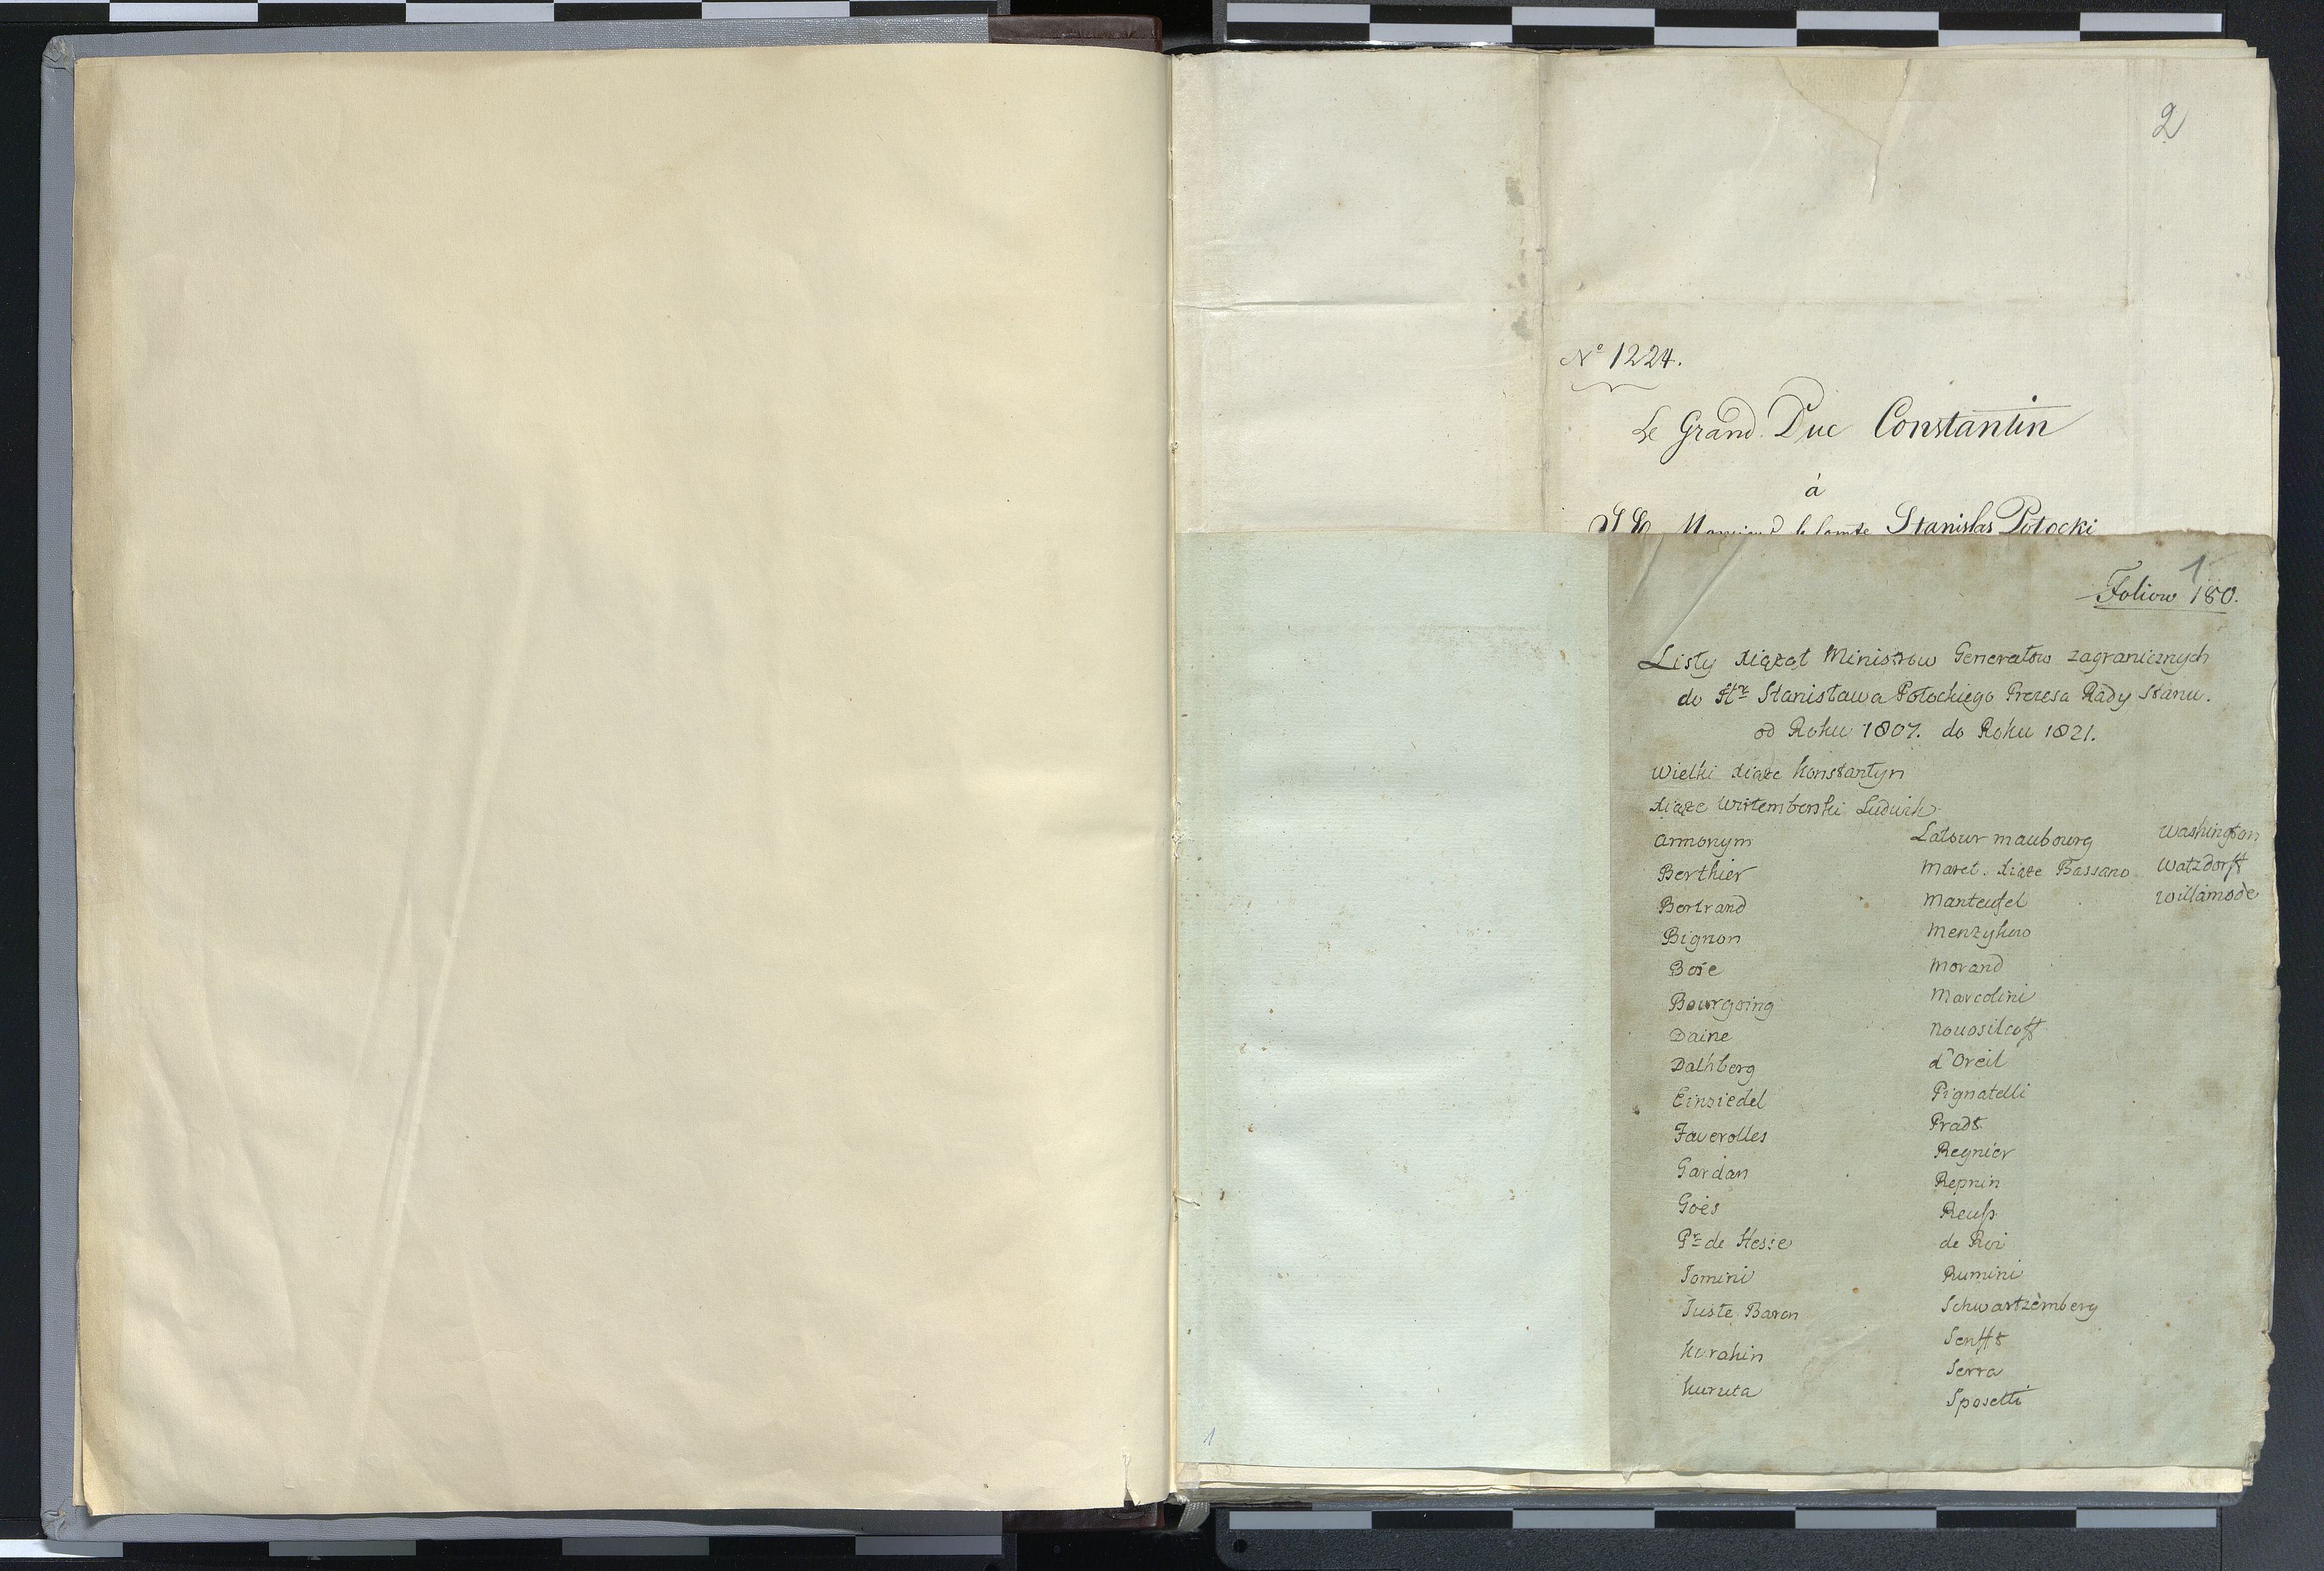 2
N° 1224.
Le Grand Duc Constantin
à
le Comte Stanislas Potocki
1
Foliow 180.
Listy Xiążąt Ministrow Generałow zagranicznych
do Hr. Stanisława Potockiego Prezesa Rady Stanu.
od Roku 1807. do Roku 1821.
Wielki Xiąże Konstantyn
Xiąże Wirtemberski Ludwik
Annonym
Berthier
Bertrand
Bignon
Bose
Bourgoing
Daine
Dalhberg
Einsiedel
Faverolles
Gardan
Goës
Pr. de Hesse
Jomini
Juste Baron
Kurakin
Kuruta
Latour maubourg
Maret. Xiąże Bassano
Manteufel
Menzykow
Morand
Marcolini
Novosilcoff
d'Oreil
Pignatelli
Pradt
Regnier
Repnin
Reuss
de Roi
Rumini
Schwartzemberg
Senfft
Serra
Sposetti
Washington
Watzdorff
Willamode
1